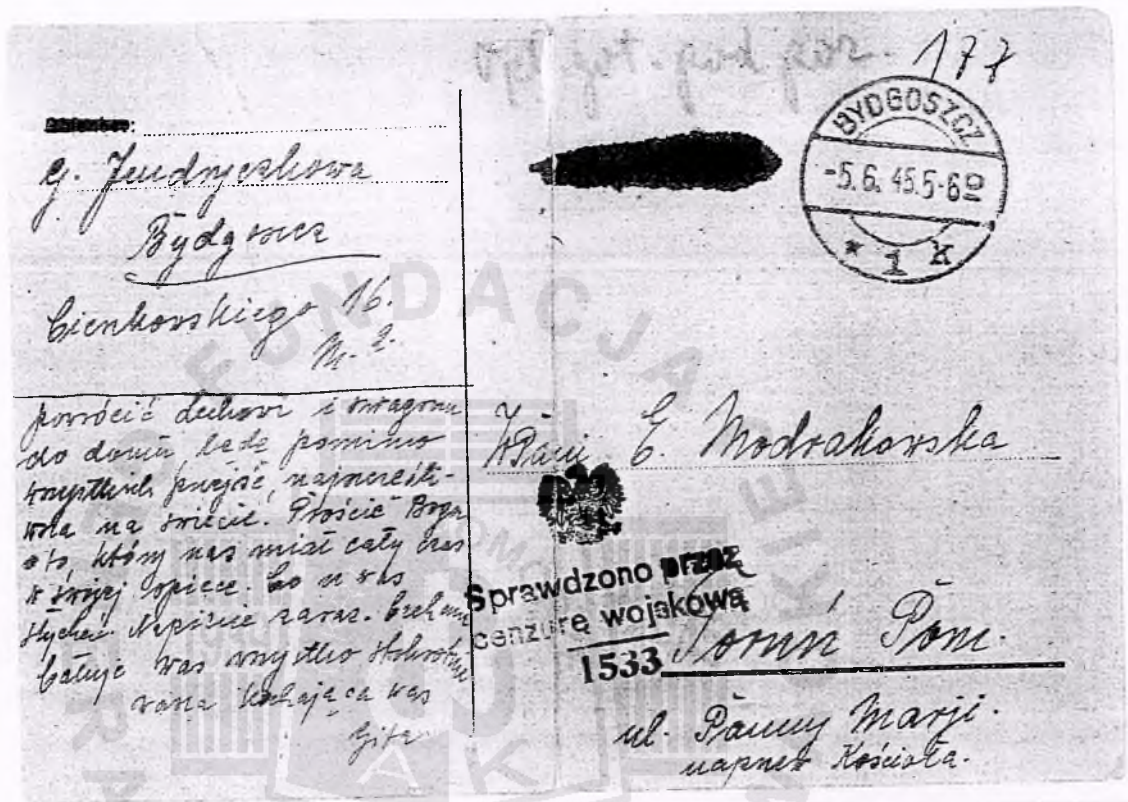 177
BYDGOSZCZ
-5.6.45.5-6
* 1 x
G. Jendryczkowa
Bydgoszcz
Cienkowskiego 16.
m. 2.
powrócić do
do domu będę pomimo
wszystkich przejść, najszczęśli-
wsza na świecie. Proście Boga
o to, który nas miał cały czas
w swojej opiece. Co u was
słychać. Napiszcie zaraz. Czekam
Całuję was wszystko stokrotnie
wasza kochająca was
Gita
WPani E. Modrakowska
Sprawdzono przez
cenzurę wojskową
1533
Toruń Pom.
ul. Panny Marji.
naprzew Kościoła.
FUNDACJA
AK